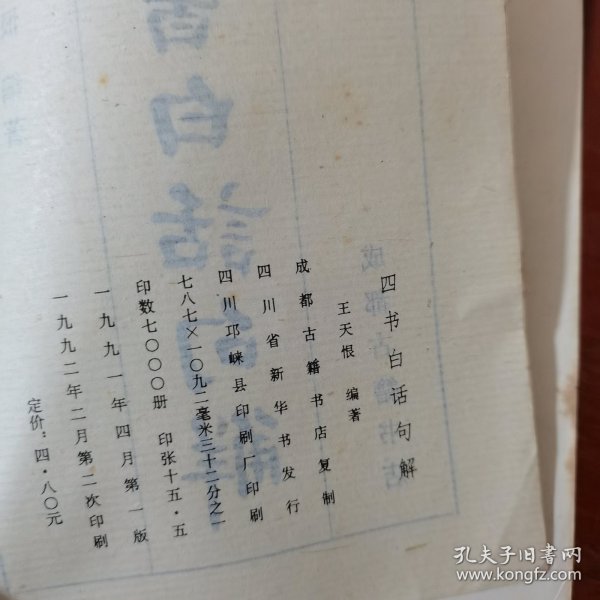 四书白话句解
王天恨 编著
成都古籍书店复制
四川省新华书发行
四川邛崃县印刷厂印刷
七八七×一〇九二毫米三十二分之一
印数七〇〇〇册 印张十五·五
一九九一年四月第一版
一九九二年二月第二次印刷
定价：四·八〇元
孔夫子旧书网
www.kongfz.com